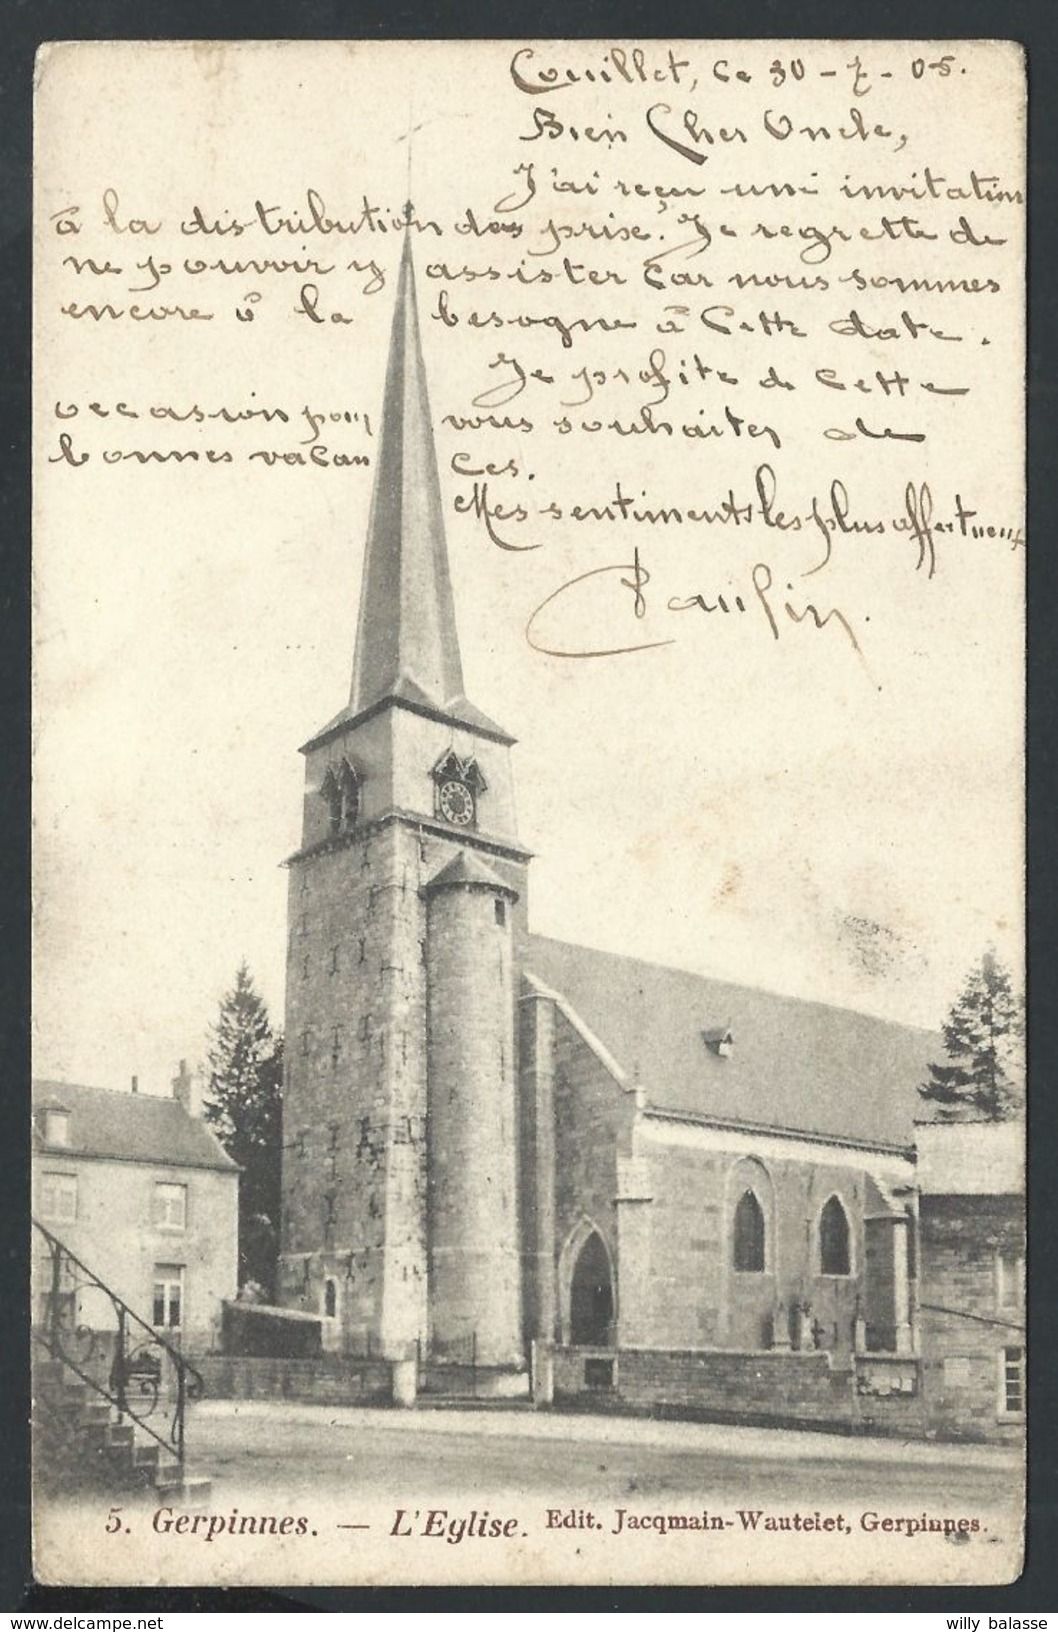 Couillet, ce 30-7-05.
Bien Cher Oncle,
J'ai reçu une invitation
à la distribution des prix. Je regrette de
ne pouvoir y assister car nous sommes
encore à la besogne à cette date.
Je profite de cette
occasion pour vous souhaiter de
bonnes vacances.
Mes sentiments les plus affectueux
Paulin.
5. Gerpinnes. — L'Eglise. Edit. Jacqmain-Wautelet, Gerpinnes.
willy balasse